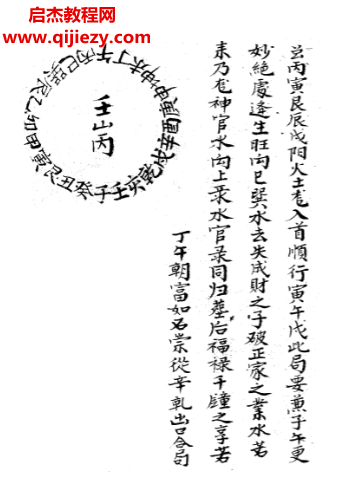 启杰教程网
www.qijiezy.com
壬山丙
子壬亥乾戌辛酉庚申坤未丁午丙巳巽辰乙卯甲寅艮丑癸
丙寅艮辰戌阳火土龙入首顺行寅午戌此局要兼子午更
妙绝处逢生旺向巳巽水去失成财之子破正家之业水若
来乃龙神官水向上录水官录同归墓后福禄千钟之享若
丁午朝富如石崇从辛乾出口合局